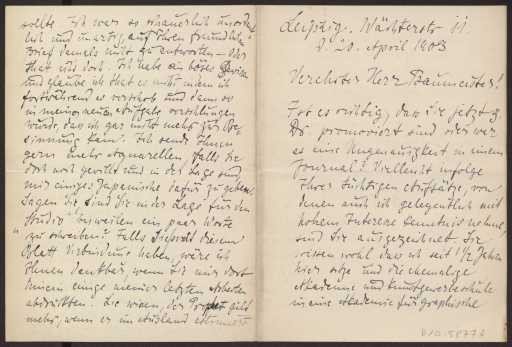 Leipzig, Wächterstr 11.
d. 20. April 1903
Verehrter Herr Baumeister!
Ist es richtig, daß Sie jetzt z.
Dr. promoviert sind oder war
es eine Ungenauigkeit in einem
Journal? Vielleicht infolge
Ihres tüchtigen Aufsätze, von
denen auch ich gelegentlich mit
hohem Interesse Kenntnis nehme,
sind Sie ausgezeichnet. Sie
wissen wohl das ich seit 1½ Jahren
hier sitze und die ehemalige
Akademie und Kunstgewerbeschule
in eine Akademie für graphische
sollte. Ich war so schauerlich unordent
lich und unartig auf Ihren freundlichen
Brief damals nicht zu antworten – oder
that ich's doch. Ich habe ein böses Gewissen
und glaube ich that es nicht indem ich
fortwährend es verschob und dann so
in meine neuen verschlungen
wurde, das ich gar nicht mehr zur Be-
sinnung kam. Ich sende Ihnen
gern mehr Aquarellen, falls Sie
dort noch gewillt und in der Lage sind
mir einiges Japanische dafür zu geben.
Sagen Sie sind Sie in der Lage für den
"Studio" bisweilen ein paar Worte
zu schreiben? Falls Sie mit diesem
Blatt Verbindung haben, wäre ich
Ihnen dankbar, wenn Sie mir dort
einige meiner letzten Arbeiten
abdruckten. Sie wissen, der Prophet gilt
mehr, wenn er im Ausland